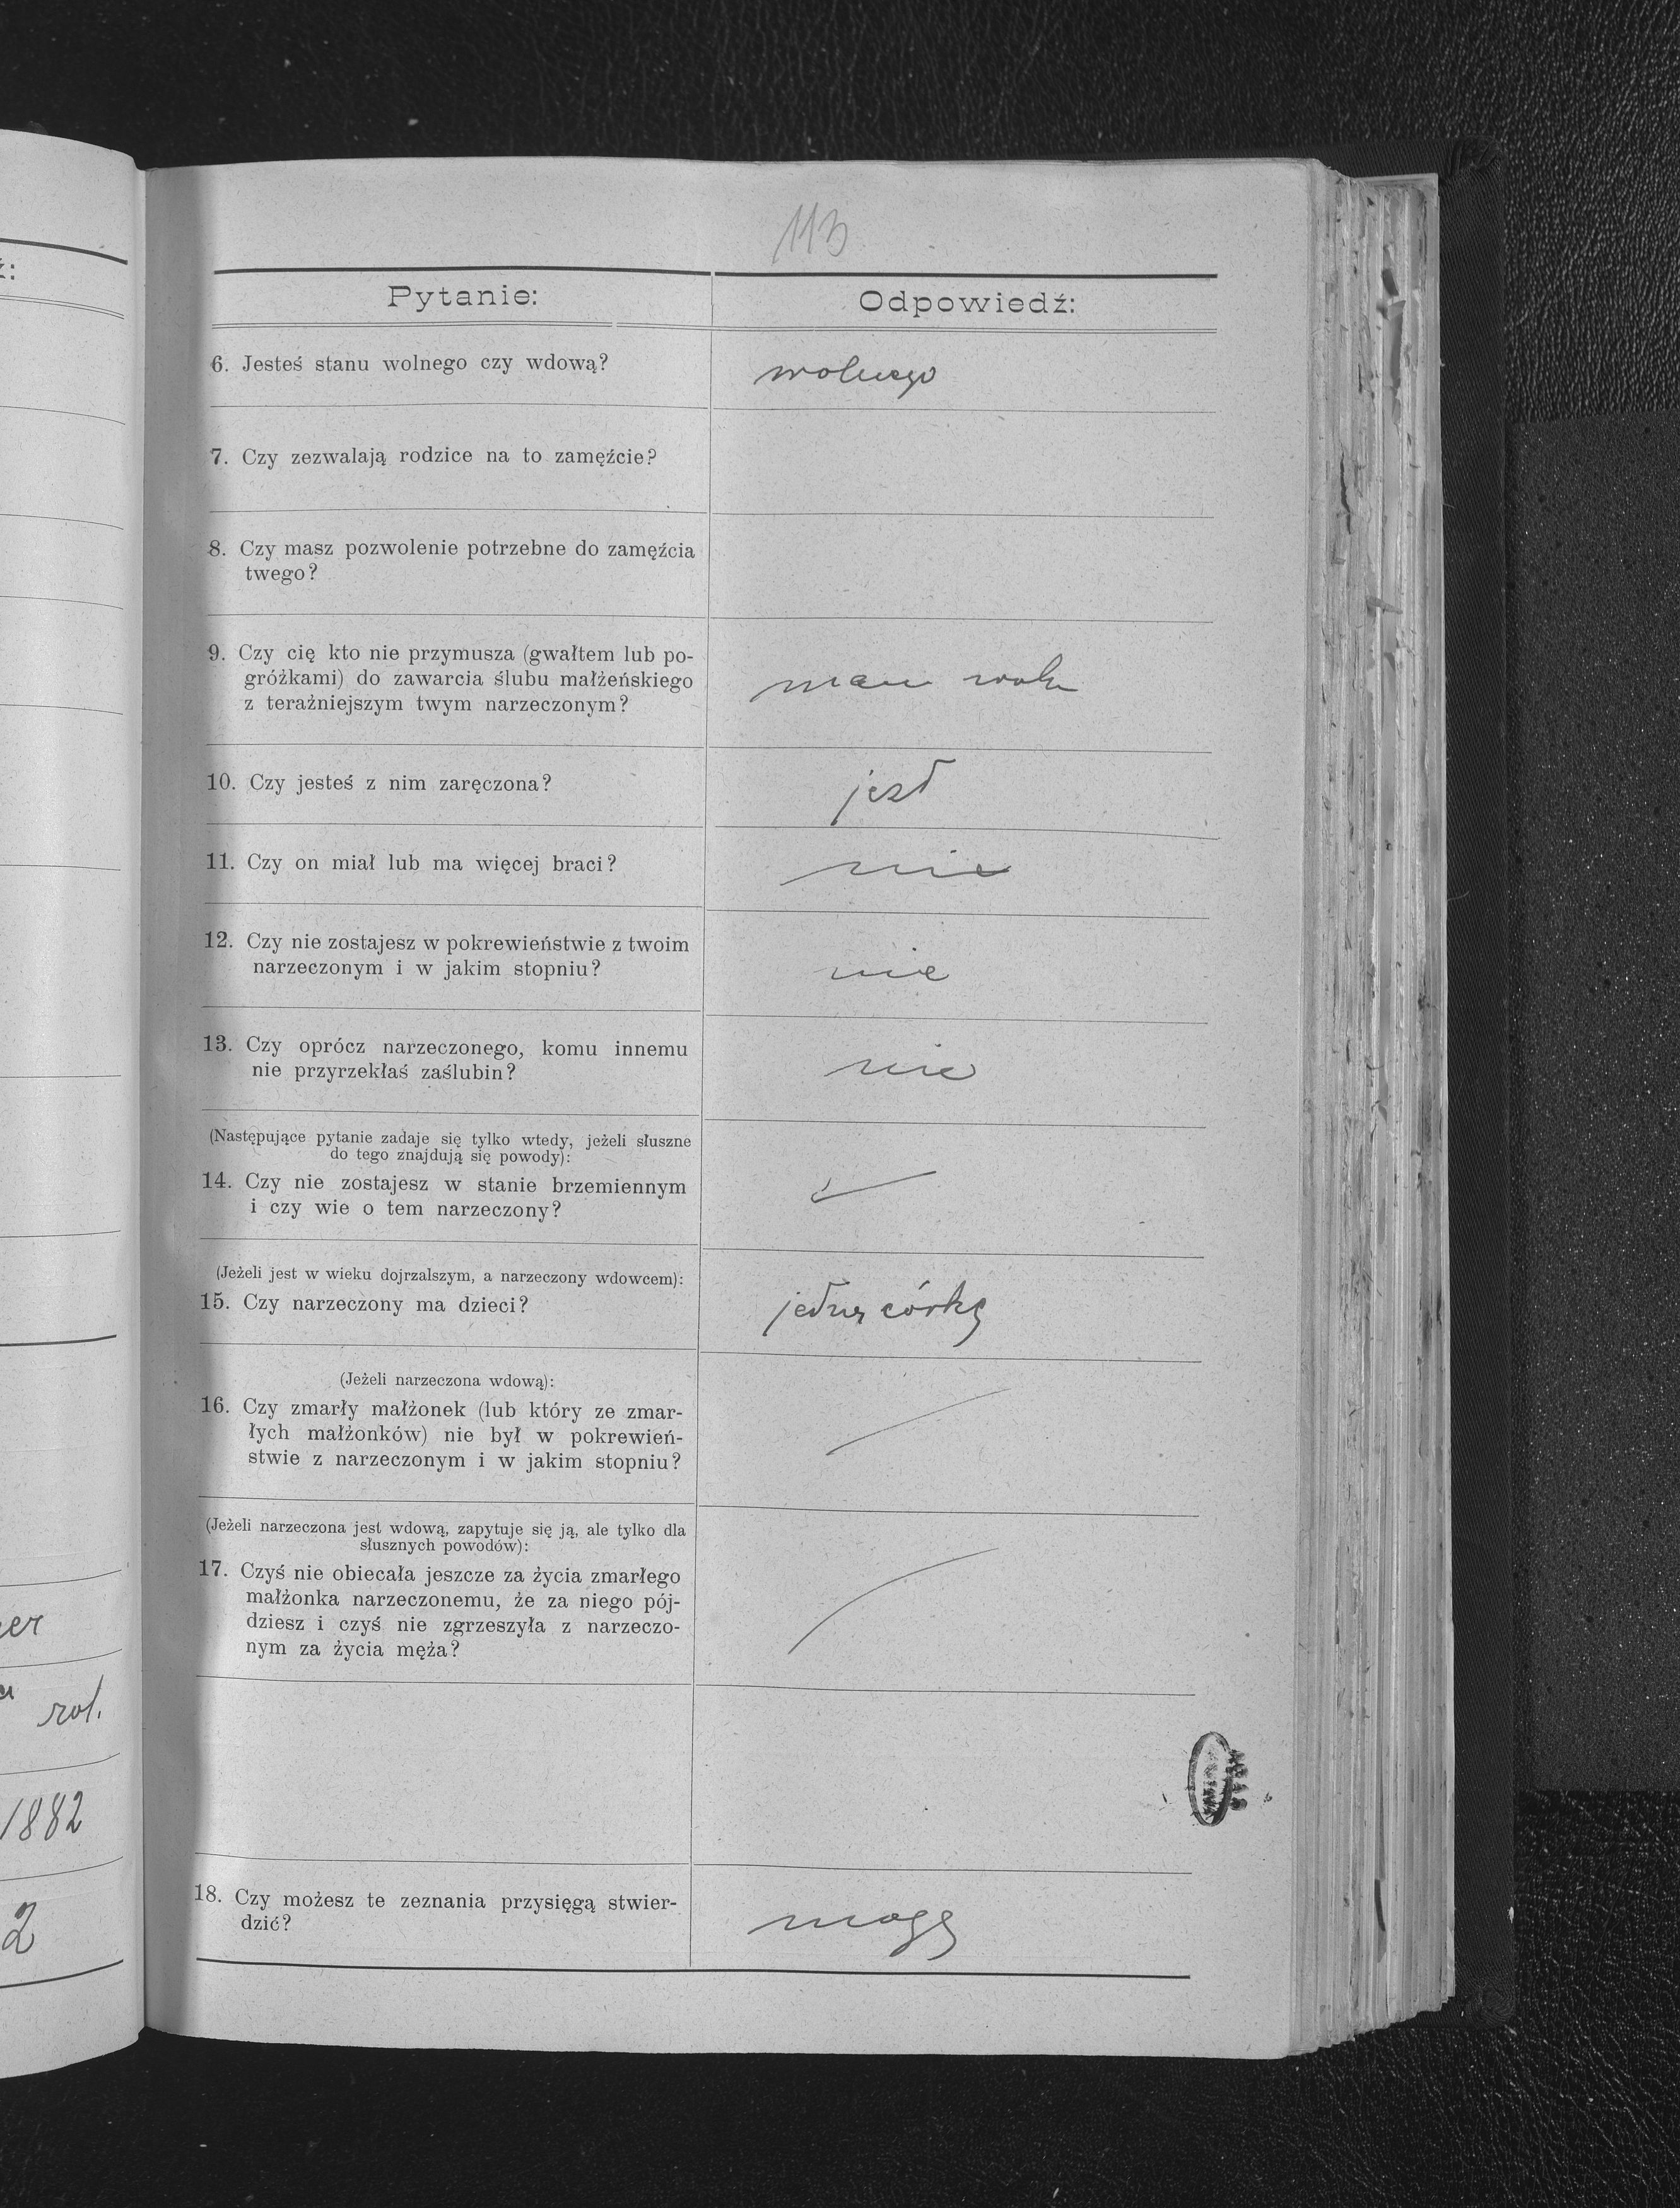 113
Pytanie:
Odpowiedź:
6. Jesteś stanu wolnego czy wdową?
wolnego
7. Czy zezwalają rodzice na to zamęźcie?
8. Czy masz pozwolenie potrzebne do zamęźcia
twego?
9. Czy cię kto nie przymusza (gwałtem lub po-
gróżkami) do zawarcia ślubu małżeńskiego
z teraźniejszym twym narzeczonym?
mam
10. Czy jesteś z nim zaręczona?
jest
11. Czy on miał lub ma więcej braci?
nie
12. Czy nie zostajesz w pokrewieństwie z twoim
narzeczonym i w jakim stopniu?
nie
13. Czy oprócz narzeczonego, komu innemu
nie przyrzekłaś zaślubin?
nie
(Następujące pytanie zadaje się tylko wtedy, jeżeli słuszne
do tego znajdują się powody):
14. Czy nie zostajesz w stanie brzemiennym
i czy wie o tem narzeczony?
(Jeżeli jest w wieku dojrzalszym, a narzeczony wdowcem):
15. Czy narzeczony ma dzieci?
jedną córkę
(Jeżeli narzeczona wdową):
16. Czy zmarły małżonek (lub który ze zmar-
łych małżonków) nie był w pokrewień-
stwie z narzeczonym i w jakim stopniu?
(Jeżeli narzeczona jest wdową, zapytuje się ją, ale tylko dla
słusznych powodów):
17. Czyś nie obiecała jeszcze za życia zmarłego
małżonka narzeczonemu, że za niego pój-
dziesz i czyś nie zgrzeszyła z narzeczo-
nym za życia męża?
18. Czy możesz te zeznania przysięgą stwier-
dzić?
mogę
er
rol.
1882
2